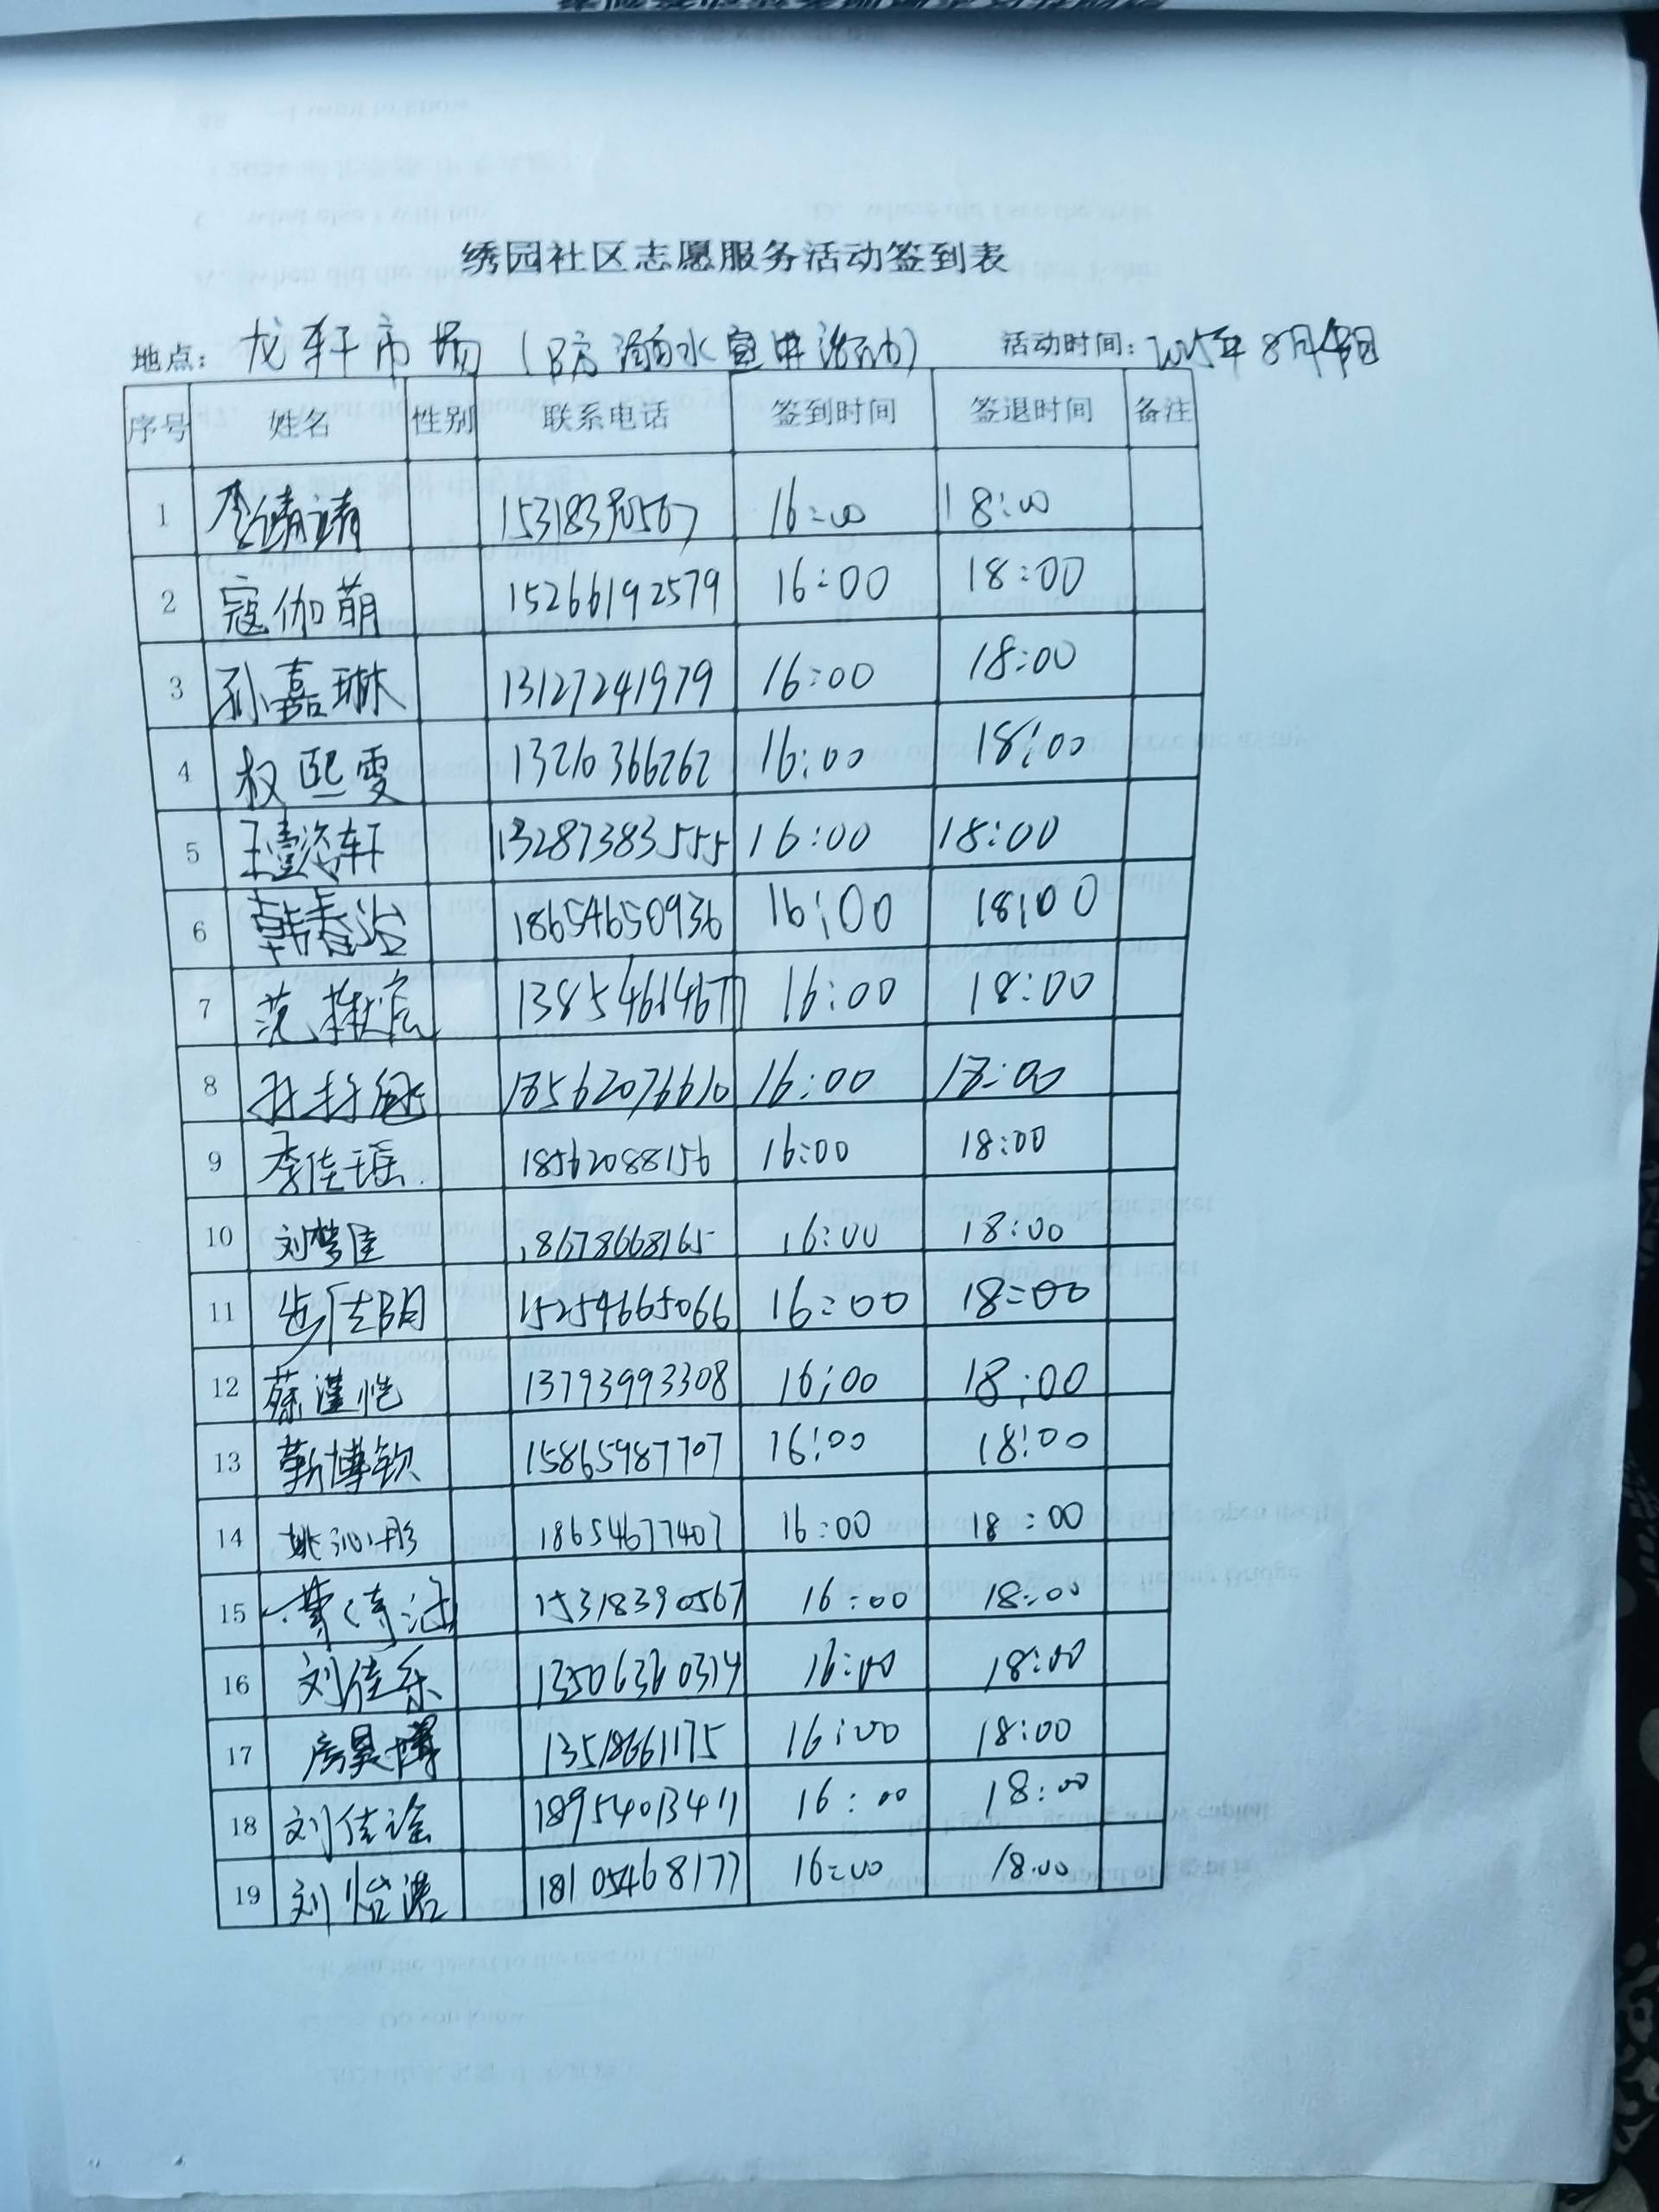 绣园社区志愿服务活动签到表
地点: 龙轩市场 (防溺水宣讲活动) 活动时间: 2025年8月
序号 姓名 性别 联系电话 签到时间 签退时间 备注
1 李靖靖 15318390567 16:00 18:00
2 寇伽萌 15266192579 16:00 18:00
3 孙嘉琳 13127241979 16:00 18:00
4 权熙雯 13210366262 16:00 18:00
5 王懿浛轩 13287383555 16:00 18:00
6 韩春治 18654650936 16:00 18:00
7 范 13854614677 16:00 18:00
8 18562076610 16:00 18:00
9 李佳瑶 18562088156 16:00 18:00
10 刘梦佳 18678668165 16:00 18:00
11 步佳阴 15254665066 16:00 18:00
12 蔡谨恺 13793993308 16:00 18:00
13 靳博钦 15865987707 16:00 18:00
14 姚沁彤 18654677407 16:00 18:00
15 15318390567 16:00 18:00
16 刘佳乐 13506360314 16:00 18:00
17 房昊博 13518661175 16:00 18:00
18 刘佳诠 18954013411 16:00 18:00
19 刘怡潞 18105468177 16:00 18:00